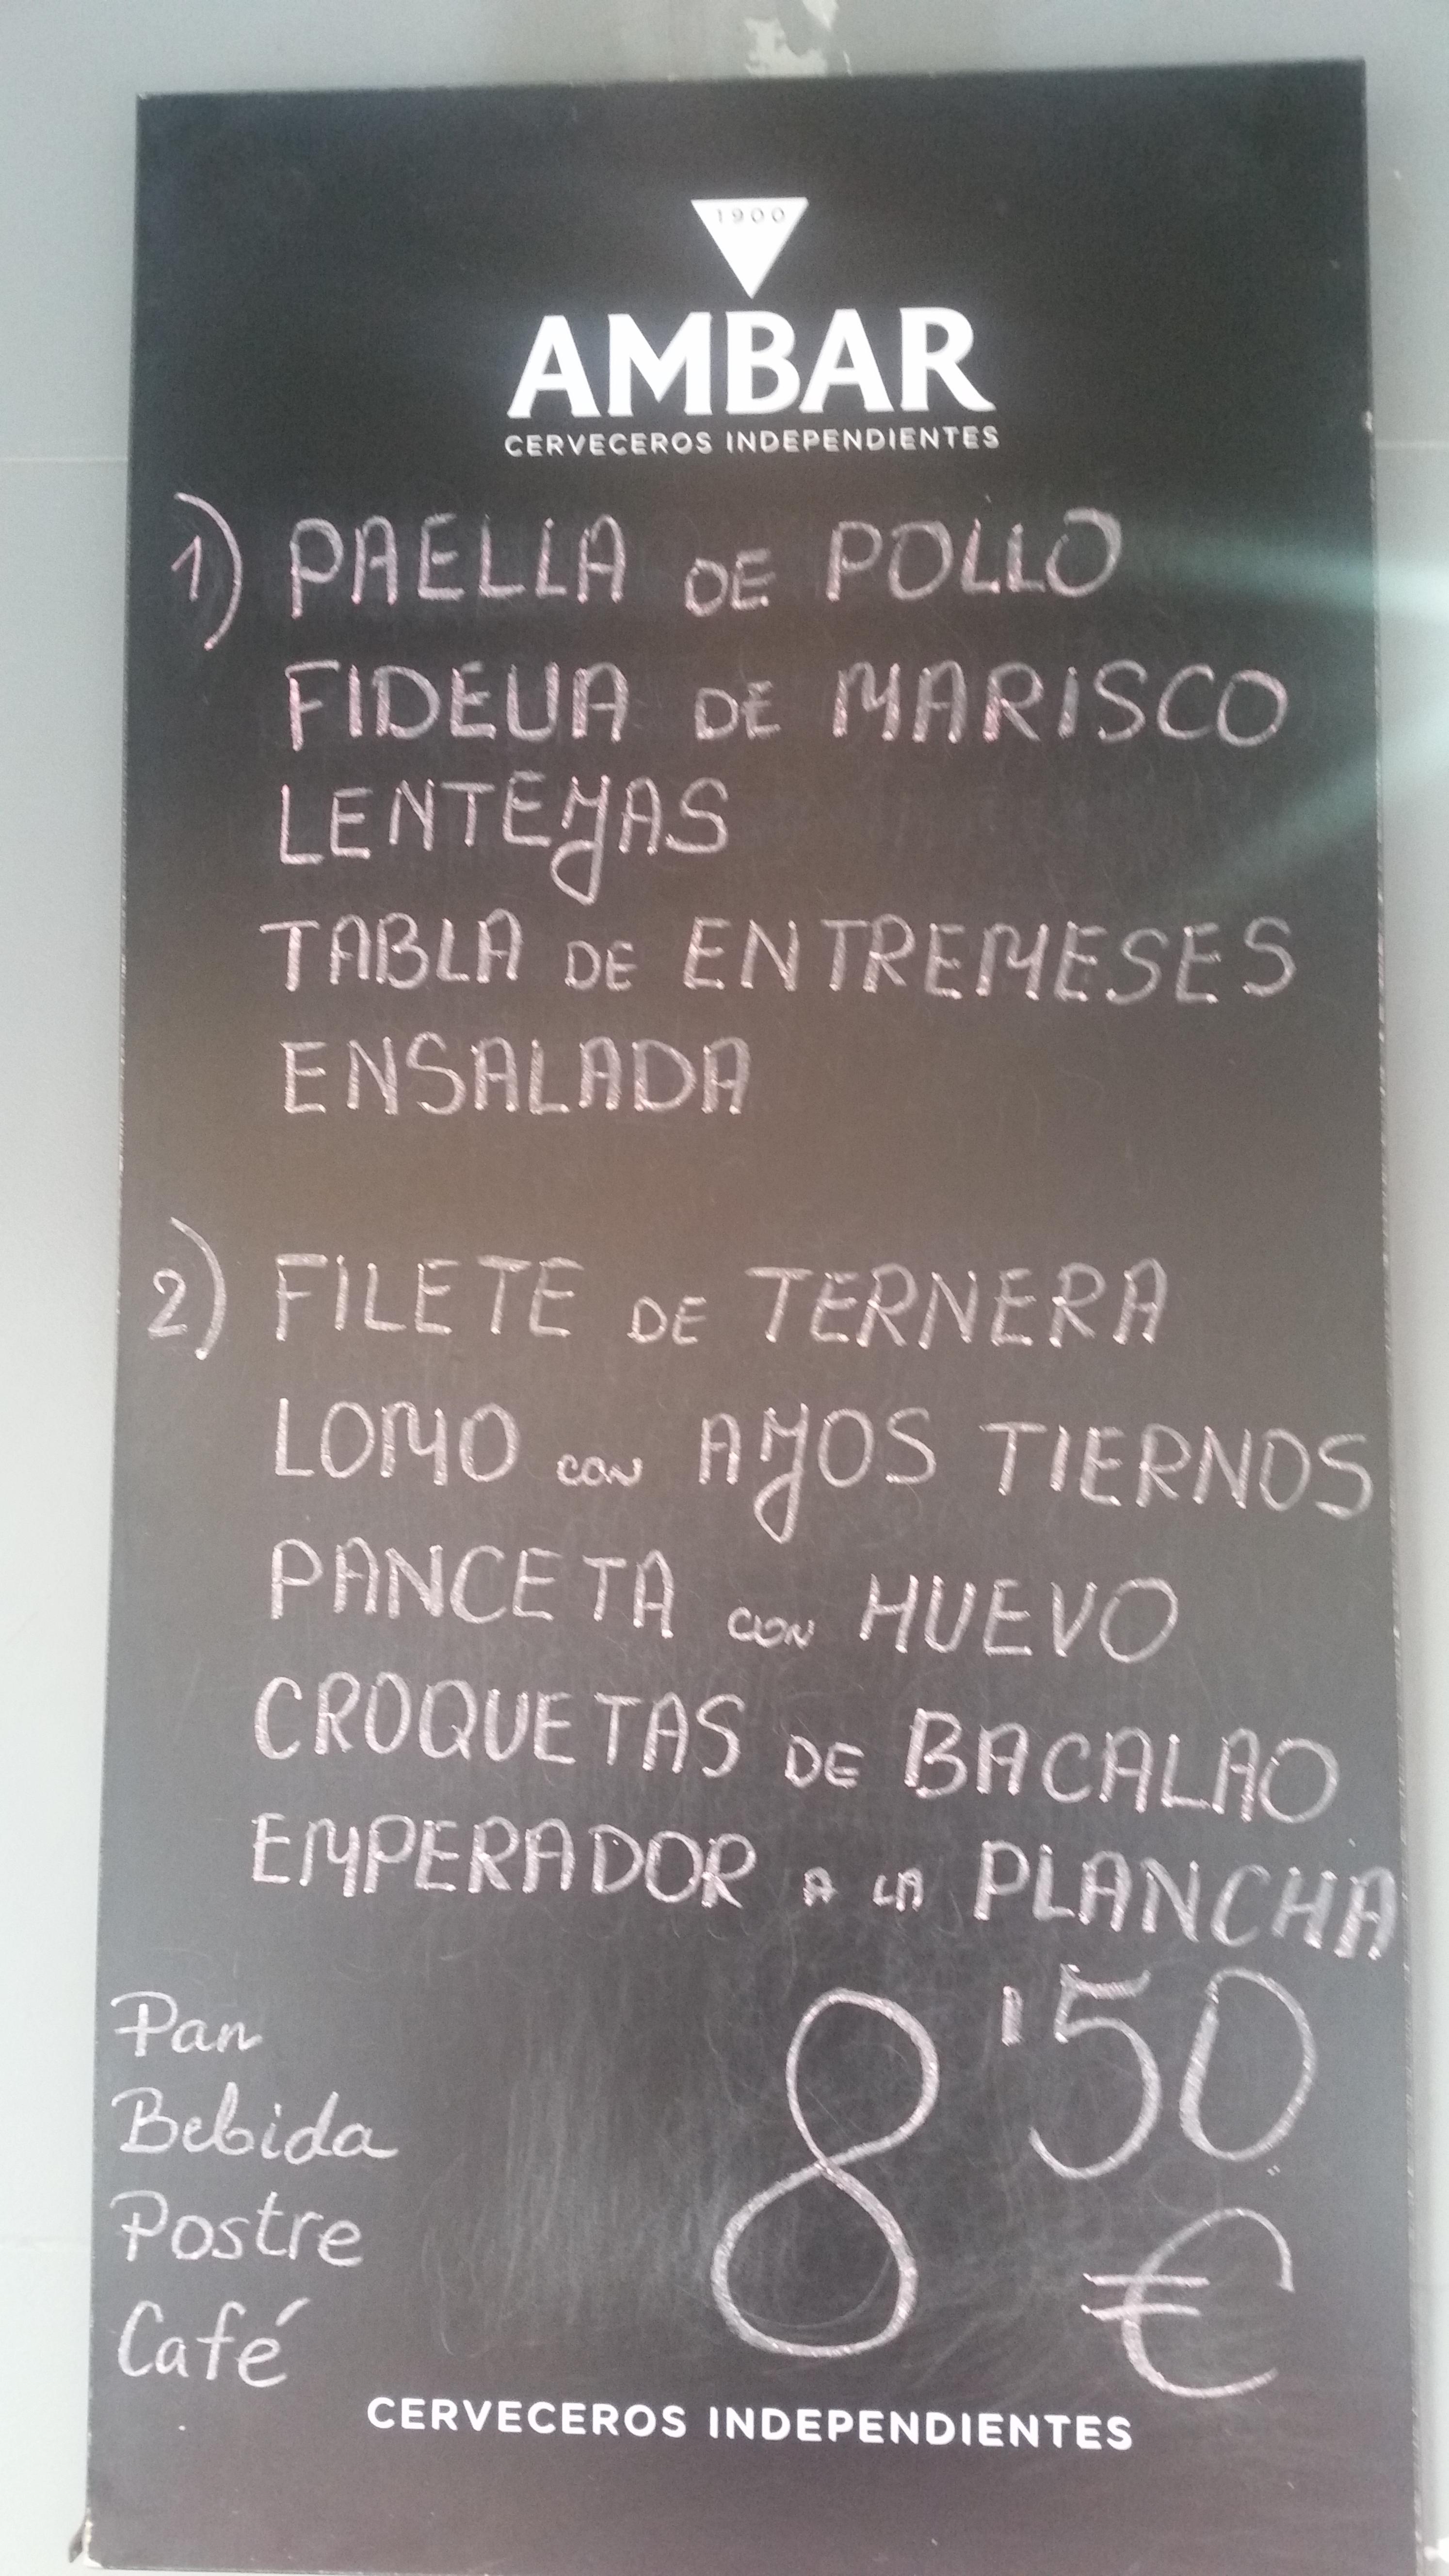 1900
AMBAR
CERVECEROS INDEPENDIENTES
1) PAELLA DE POLLO
FIDEUA DE MARISCO
LENTEJAS
TABLA DE ENTREMESES
ENSALADA
2) FILETE DE TERNERA
LOMO con AJOS TIERNOS
PANCETA con HUEVO
CROQUETAS DE BACALAO
EMPERADOR A LA PLANCHA
Pan
Bebida
Postre
Café
8'50
€
CERVECEROS INDEPENDIENTES